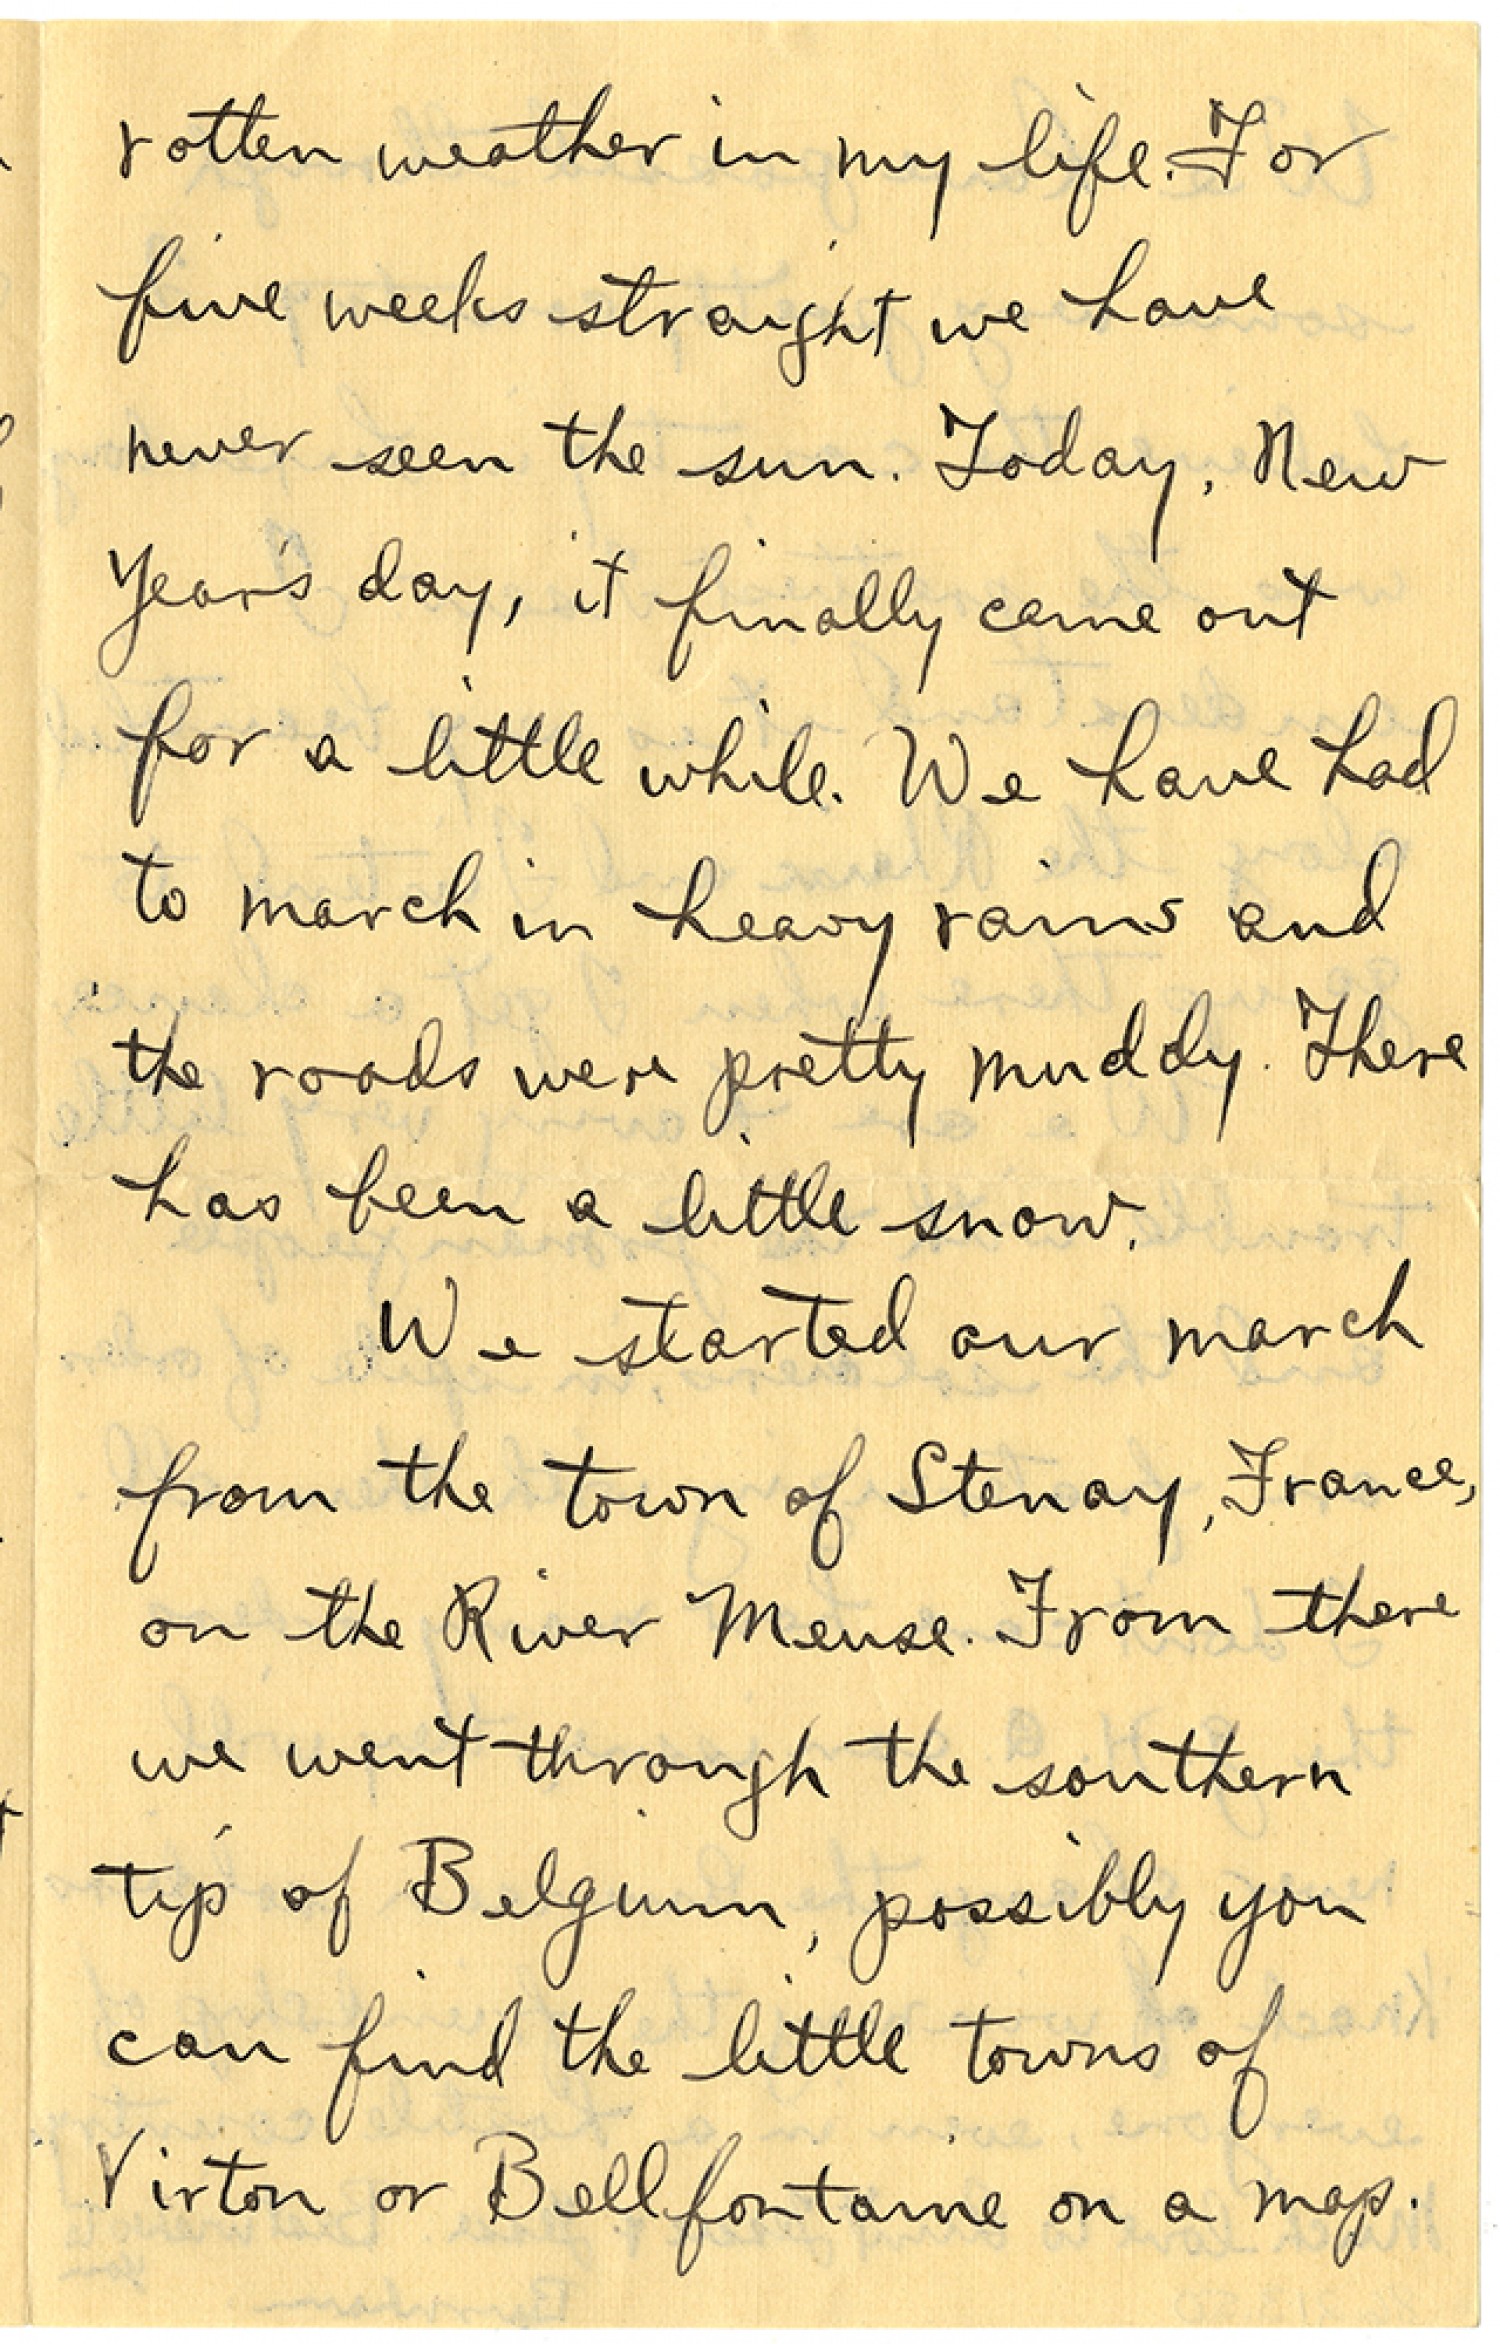 rotten weather in my life. For
five weeks straight we have
never seen the sun. Today, New
Year's day, it finally came out
for a little while. We have had
to march in heavy rains and
the roads were pretty muddy. There
has been a little snow.
We started our march
from the town of Stenay, France,
on the River Meuse. From there
we went through the southern
tip of Belgium, possibly you
can find the little towns of
Virton or Bellfontaine on a map.